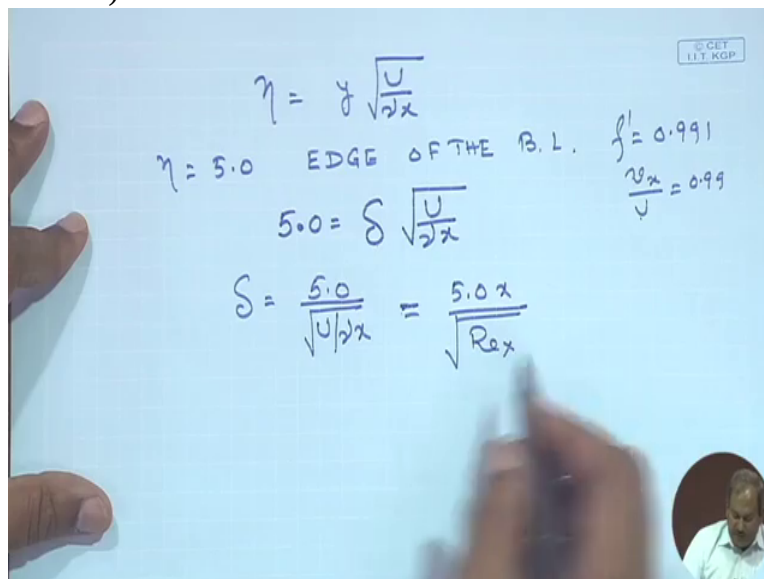 © CET
I.I.T. KGP
η = y √(U/νx)
η = 5.0 EDGE OF THE B.L. f' = 0.991
vₓ/U = 0.99
5.0 = δ √(U/νx)
δ = 5.0/√(U/νx) = 5.0x/√Reₓ